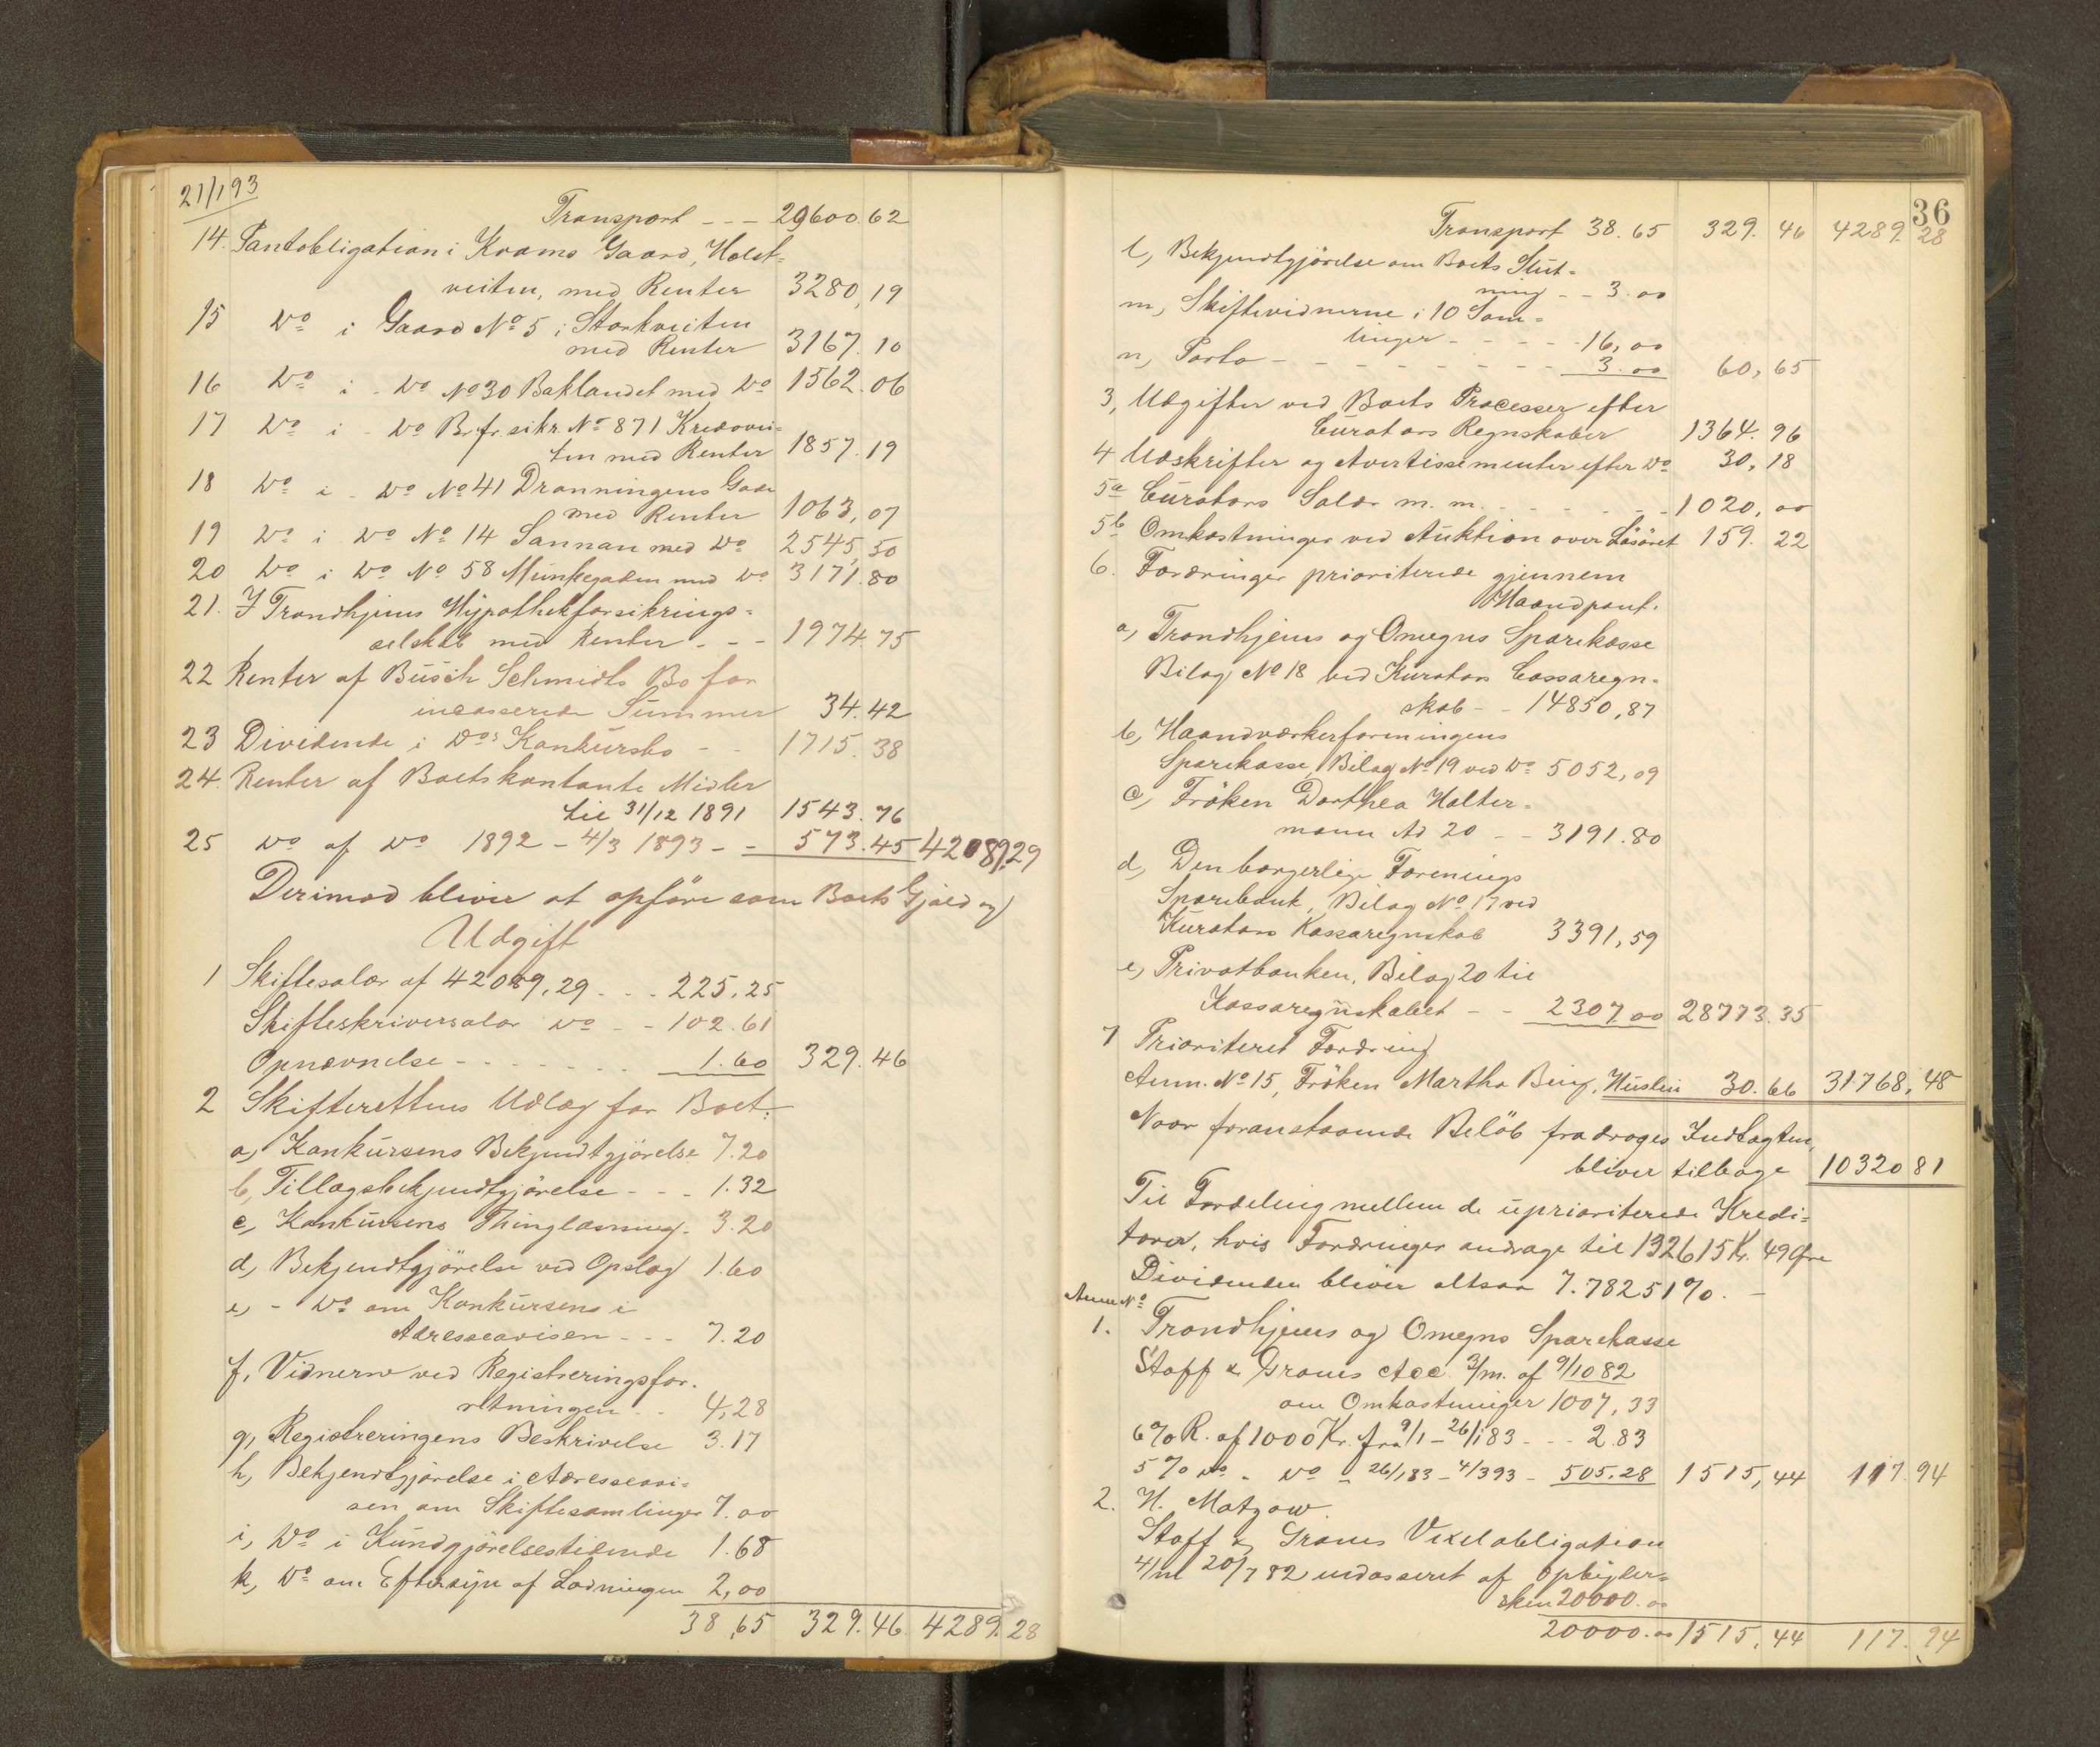 21/1 93
Transport - - - 29600.62
14. Pantobligation i Krams Gaard, Holst=
veiten, med Renter 3280,19
15 Do i Gaard No 5 i Storkveiten
med Renter 3167.10
16 Do i - Do No 30 Baklandet med Do 1562.06
17 Do i - Do Br.fr.sikr. No 871 Kredovei=
ten med Renter 1857.19
18 Do i - Do No 41 Dronningens Gade
med Renter 1063,07
19 Do i Do No 14 Sannan med Do 2545,50
20 Do i Do No 58 Munkegaden med Do 3171.80
21. I Trondhjems Hypothekforsikrings=
selskab med Renter - - - 1974.75
22 Renter af Büsch Schmidts Bo for
incasserede Summer 34.42
23 Dividende i Do's Konkursbo - - 1715.38
24. Renter af Boets kontante Midler
til 31/12 1891 1543.76
25 Do af Do 1892 - 4/3 1893 - - 573.45 42089.29
Derimod bliver at opföre som Boets Gjæld og
Udgift
1 Skiftesalær af 42089,29 - - - 225.25
Skifteskriversalær Do - - 102.61
Opnævnelse - - - - - - - 1.60 329.46
2 Skifterettens Udlæg for Boet:
a, Konkursens Bekjendtgjörelse 7.20
b, Tillægsbekjendtgjörelse - - - 1.32
c, Konkursens Thinglæsning - 3.20
d, Bekjendtgjörelse ved Opslag 1.60
e, - Do om Konkursens i
Adresseavisen - - - 7.20
f, Vidnerne ved Registreringsfor-
retningen - - 4,28
g, Registreringens Beskrivelse 3.17
h, Bekjendtgjörelse i Adresseavi=
sen om Skiftesamlinger 7.00
i, Do i Kundgjörelsestidende 1.68
k, Do om Eftersyn af Ladningen 2,00
38,65 329.46 4289.28
36
Transport 38.65 329.46 4289.28
l, Bekjendtgjörelse om Boets Slut=
ning - - 3.00
m, Skiftevidnerne i 10 Sam=
linger - - - - - 16,00
n, Porto - - - - - - - - 3.00 60,65
3, Udgifter ved Boets Processer efter
Curators Regnskaber 1364.96
4 Udskrifter og Avertissementer efter Do 30,18
5a Curators Salær m. m. - - - - - - 1020,00
5b Omkostninger ved Auktion over Lösöret 159.22
6. Fordringer prioriterede gjennem
Haandpant.
a, Trondhjems og Omegns Sparekasse
Bilag No 18 ved Kurators Cassaregn-
skab - - 14850,87
b, Haandværkerforeningens
Sparekasse, Bilag No 19 ved Do 5052,09
c, Fröken Dorthea Halter=
mann Ad 20 - - 3191.80
d, Den borgerlige Forenings
Sparebank, Bilag No 17 ved
Kurators Kassaregnskab 3391,59
e, Privatbanken, Bilag 20 til
Kassaregnskabet - - 2307.00 28773.35
7 Prioriteret Fordring
Anm. No 15, Fröken Martha Bing, Husleie 30.66 31768,48
Naar foranstaaende Belöb fradrages Indtægten,
bliver tilbage 10320 81
Til Fordeling mellem de uprioriterede Kredi=
torer, hvis Fordringer andrage til 132615 Kr. 49 Øre
Dividenden bliver altsaa 7.78251%. -
Anm No
1. Trondhjems og Omegns Sparekasse
Staff & Grams Acc. 3/m. af 9/10 82
om Omkostninger 1007,33
6% R. af 1000 Kr. fra 9/1 - 26/1 83 - - - 2.83
5% Do - Do - 26/1 83 - 4/3 93 - 505.28 1515,44 117.94
2. H. Matzow
Staff & Grams Vexelobligation
4/m 20/7 82
20000.00
20000.00 1515,44 117.94